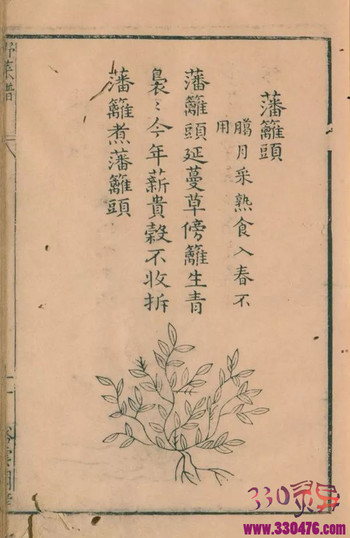 藩籬頭
臈月采熟食入春不
用
藩籬頭延蔓草傍籬生青
裊〻今年薪貴穀不收拆
藩籬煮藩籬頭
野菜譜
330
www.330476.com